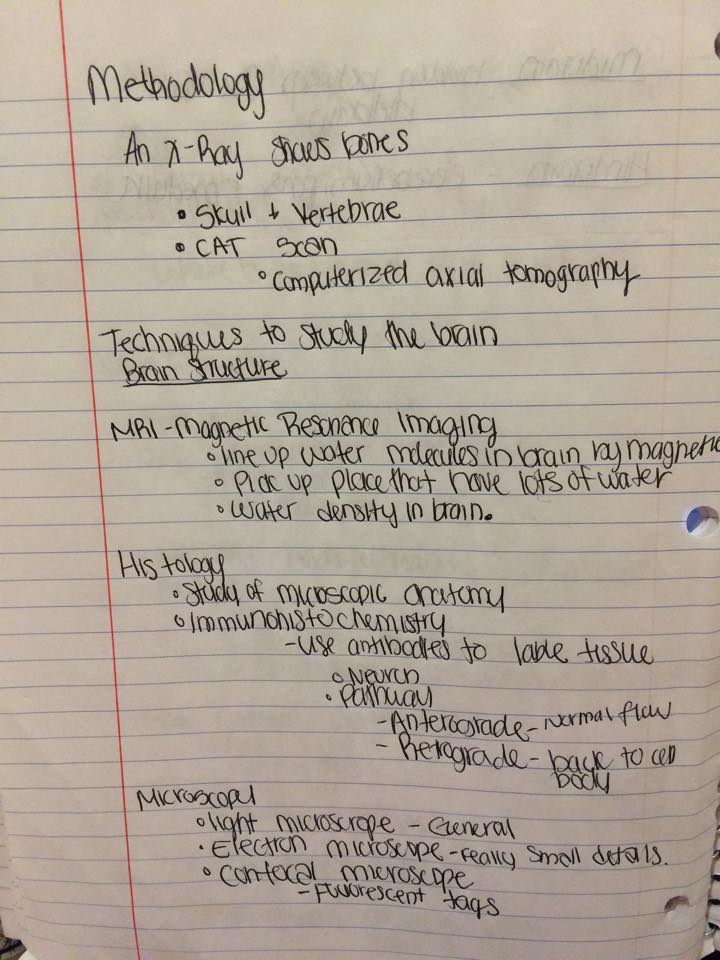 Methodology
An X-Ray shows bones
• Skull + Vertebrae
• CAT Scan
• Computerized axial tomography
Techniques to study the brain
Brain Structure
MRI - Magnetic Resonance Imaging
• line up water molecules in brain by magnetic
• Pick up place that have lots of water
• Water density in brain.
Histology
• Study of microscopic anatomy
• Immunohistochemistry
- Use antibodies to lable tissue
• Neuron
• Pathway
- Anterograde - Normal flow
- Retrograde - back to cell
body
• light microscope - General
• Electron microscope - really small details.
• Confocal microscope